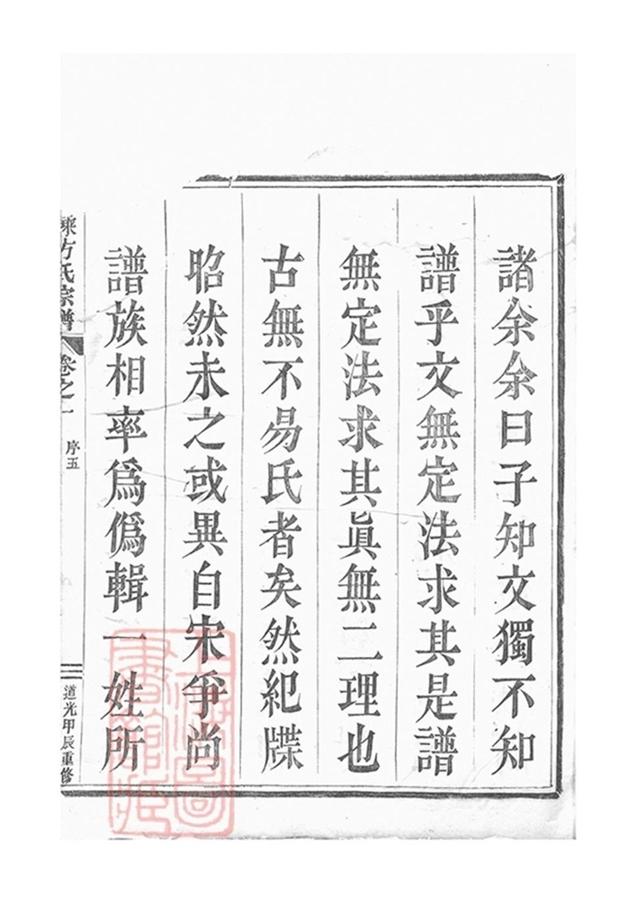 諸余余曰子知文獨不知
譜乎文無定法求其是譜
無定法求其眞無二理也
古無不易氏者矣然紀牒
昭然未之或異自宋爭尚
譜族相率爲僞輯一姓所
方氏宗譜
卷之一
序五
道光甲辰重修
書館藏